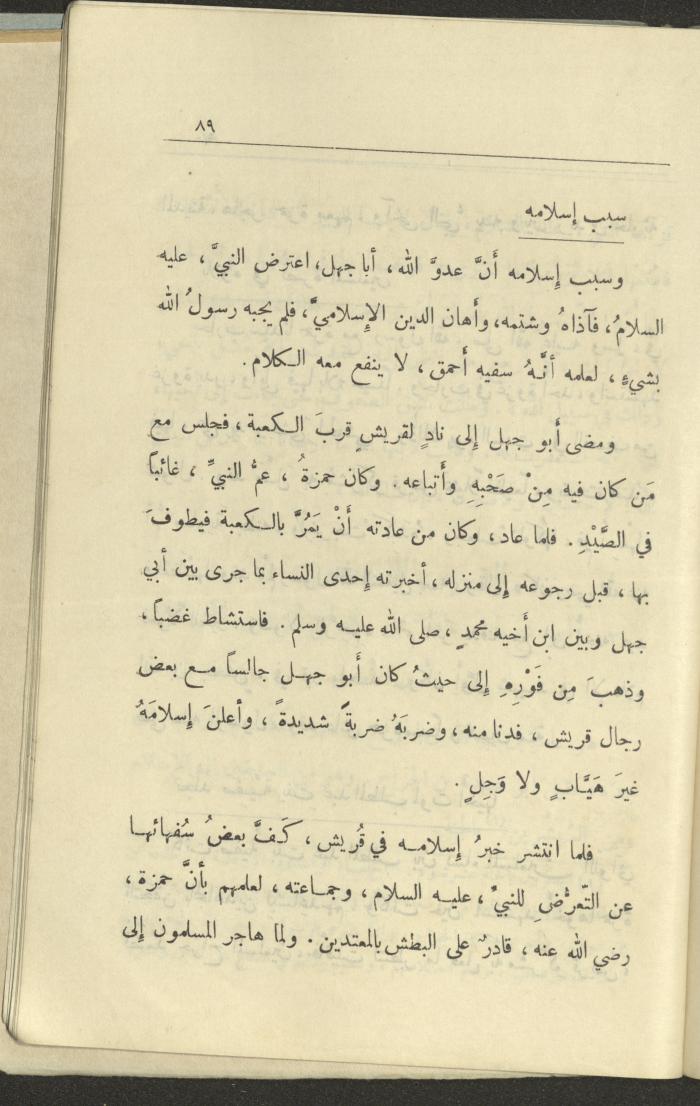 ٨٩
سبب إسلامه
وسبب إسلامه أَنَّ عدوَّ الله، أبا جهل، اعترض النبيَّ، عليه
السلامُ، فآذاهُ وشتمه، وأَهان الدين الإسلاميَّ، فلم يجبه رسولُ الله
بشيءٍ، لعلمه أنَّهُ سفيه أحمق، لا ينفع معه الكلام.
ومضى أَبو جهل إلى نادٍ لقريشٍ قربَ الكعبة، فجلس مع
مَن كان فيه مِنْ صَحْبِهِ وأَتباعه. وكان حمزةُ، عمُّ النبيِّ، غائباً
في الصَّيْدِ. فلما عاد، وكان من عادته أَنْ يَمُرَّ بالكعبة فيطوفَ
بها، قبل رجوعه إلى منزله، أخبرته إحدى النساء بما جرى بين أبي
جهل وبين ابن أَخيه محمدٍ، صلى الله عليه وسلم. فاستشاط غضباً،
وذهبَ مِن فَوْرِهِ إلى حيثُ كان أَبو جهل جالساً مع بعض
رجال قريش، فدنا منه، وضربَهُ ضربةً شديدةً، وأعلنَ إسلامَهُ
غيرَ هَيَّابٍ ولا وَجِلٍ.
فلما انتشر خبرُ إسلامه في قُريش، كَفَّ بعضُ سُفهائها
عن التّعرُّضِ للنبيِّ، عليه السلام، وجماعته، لعلمهم بأنَّ حمزة،
رضي الله عنه، قادرٌ على البطش بالمعتدين. ولما هاجر المسلمون إلى